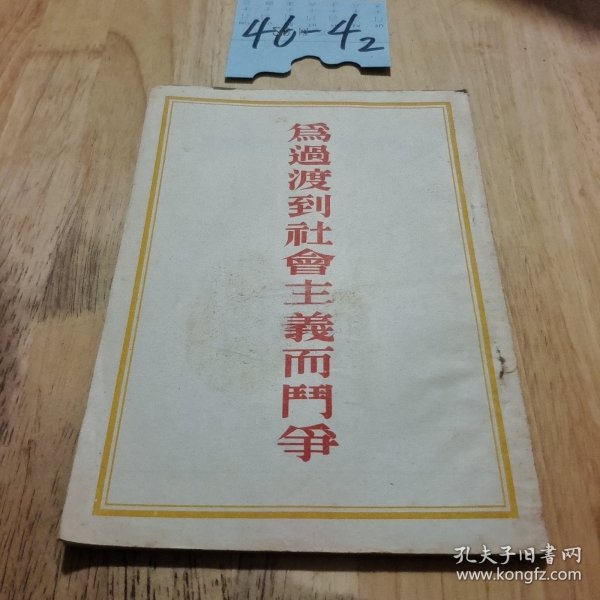 46-42
為過渡到社會主義而鬥爭
孔夫子旧書网
www.kongfz.com